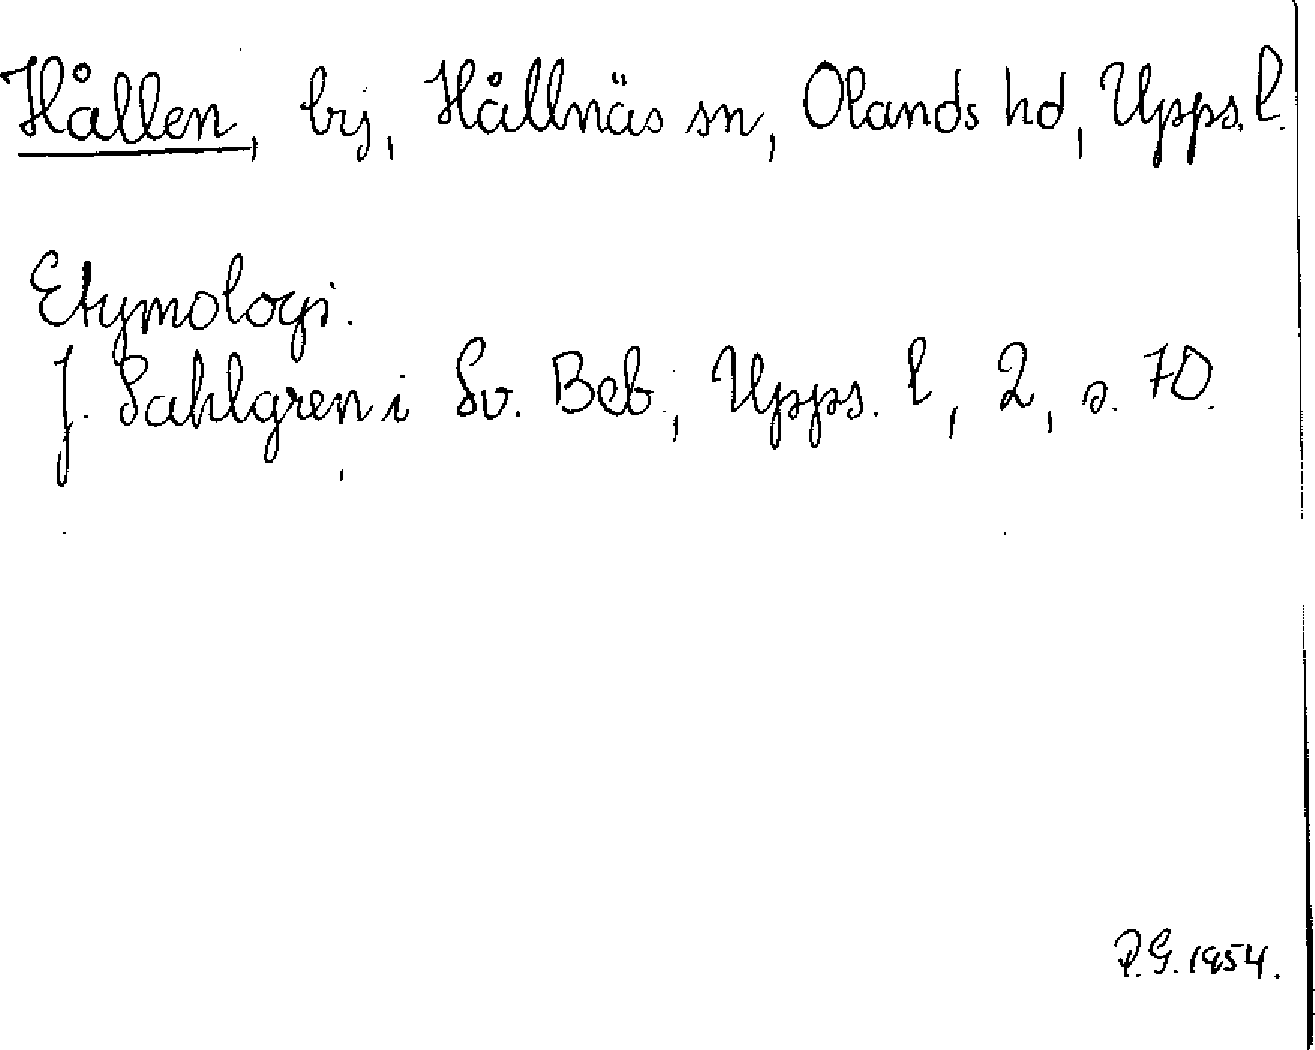 Hållen, by, Hållnäs sn, Olands hd, Upps. l.
Etymologi.
J. Sahlgren i Sv. Beb., Upps. l, 2, s. 70.
P.G. 1954.